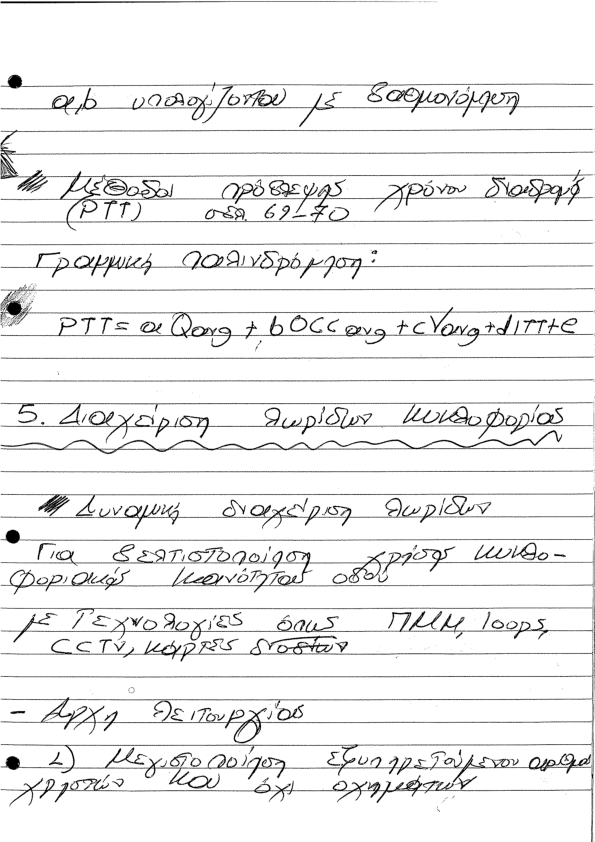 a,b υπολογίζονται με βαθμονόμηση
Μέθοδοι πρόβλεψης χρόνου διαδρομής
(PTT) σελ. 69-70
Γραμμική παλινδρόμηση:
PTT = a Qavg + bOCCavg + cVavg + dITT+e
5. Διαχείριση λωρίδων κυκλοφορίας
Δυναμική διαχείριση λωρίδων
Για βελτιστοποίηση χρήσης κυκλο-
φοριακής ικανότητας οδού
με τεχνολογίες όπως ΠΜΜ, loops,
CCTV, κάρτες διοδίων
- Αρχή λειτουργίας
1) Μεγιστοποίηση εξυπηρετούμενου αριθμού
χρηστών και όχι οχημάτων